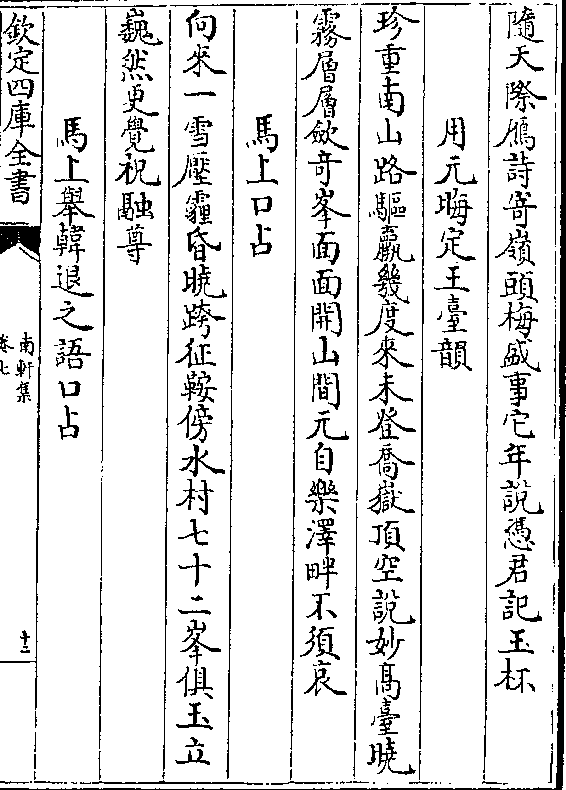 隨天際鴈詩寄嶺頭梅盛事它年說憑君記玉杯
用元晦定王臺韻
珍重南山路驅羸幾度來未登喬嶽頂空說妙髙臺曉
霧層層斂竒峯面面開山間元自樂澤畔不須哀
馬上口占
向來一雪壓霾昏曉跨征鞍傍水村七十二峯俱玉立
巍然更覺祝融尊
馬上舉韓退之語口占
欽定四庫全書
南軒集
卷七
十二